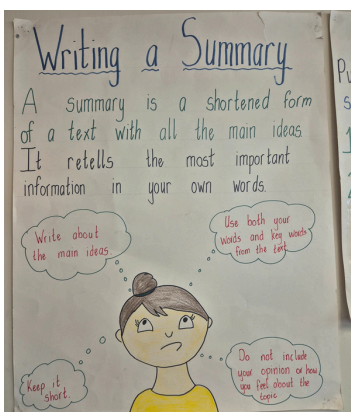 Writing a Summary
A summary is a shortened form
of a text with all the main ideas
It retells the most important
information in your own words.
Write about
the main ideas
Use both your
words and key words
from the text
Keep it
short.
Do not include
your opinion or how
you feel about the
topic